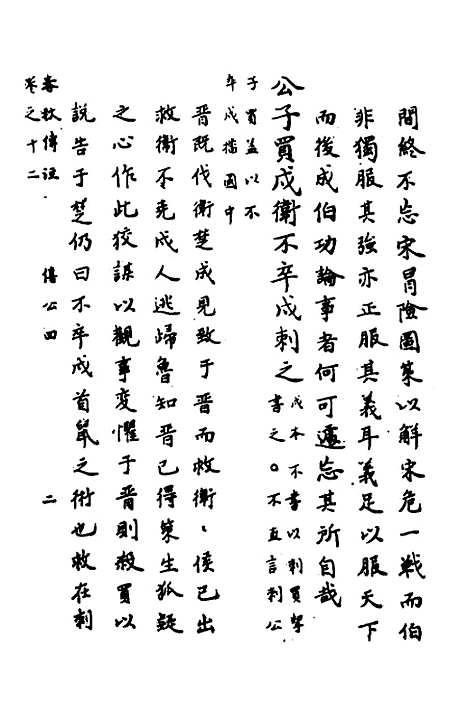 間終不忘宋冐險圖策以解宋危一戰而伯
非獨服其強亦正服其義耳義足以服天下
而後成伯功論事者何可遽忘其所自哉
公子買戍衛不卒戍刺之戍本不書以刺買架
書之○不直言刺公
子買蓋以不
卒戍播國中
晉既伐衛楚戍見致于晉而救衛、侯已出
救衛不克戍人逃歸魯知晉已得策生狐疑
之心作此狡謀以觀事变懼于晉則殺買以
說告于楚仍曰不卒戍首鼠之術也救在刺
春秋傳註
僖公四
二
卷之十二